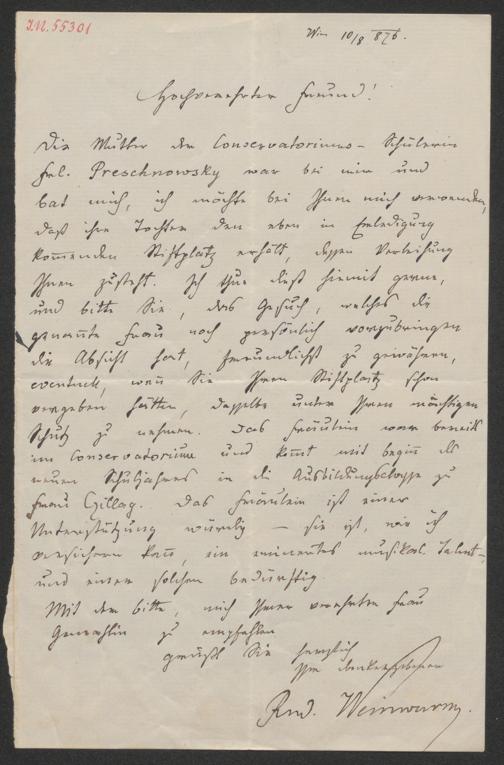 I.N. 55301
Wien 10/8 876.
Hochverehrter Freund!
Die Mutter der Conservatoriums-Schülerin
Frl. Preschnowsky war bei mir und
bat mich, ich möchte bei Ihnen mich verwenden,
daß ihre Tochter den eben in Erledigung
kommenden Stiftplatz erhält, dessen Verleihung
Ihnen zusteht. Ich thue dieß hiemit gerne,
und bitte Sie, das Gesuch, welches die
genannte Frau noch persönlich vorzubringen
die Absicht hat, freundlichst zu gewähren,
eventuell, wenn Sie Ihren Stiftplatz schon
vergeben hätten, dasselbe unter Ihren mächtigen
Schutz zu nehmen. Das Fräulein war bereits
im Conservatorium und kommt mit Beginn des
neuen Schuljahres in die Ausbildungsclasse zu
Frau Csillag. Das Fräulein ist einer
Unterstützung würdig – sie ist, wie ich
versichern kann, ein eminentes musikal. Talent –
und einer solchen bedürftig.
Mit der Bitte, mich Ihrer verehrten Frau
Gemahlin zu empfehlen
grüßt Sie herzlich
Ihr
Rud. Weinwurm.